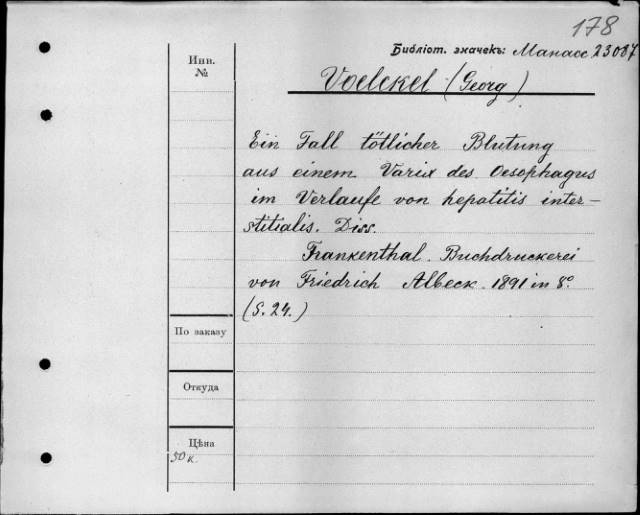 178
Библіот. значекъ: Манасс 23087
Инв.
№
Voelckel (Georg)
Ein Fall tötlicher Blutung
aus einem Varix des Oesophagus
im Verlaufe von hepatitis inter-
stitialis. Diss.
Frankenthal. Buchdruckerei
von Friedrich Albeck. 1891 in 8°.
(S. 24.)
По заказу
Откуда
Цѣна
50 к.